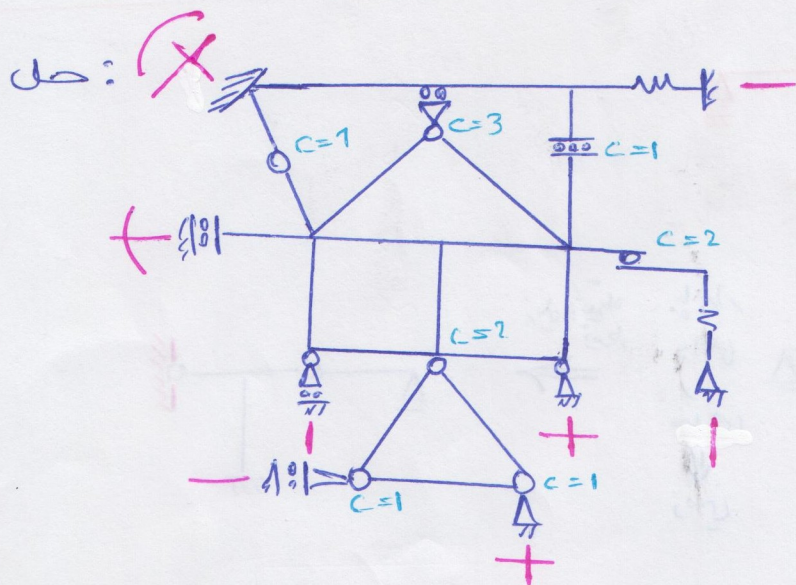 حل :
C=3
C=1
C=1
C=2
C=2
C=1
C=1